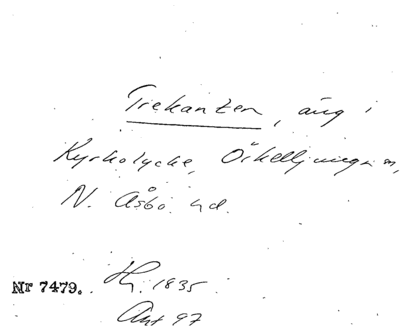 Trekanten, äng i
Kyrkolycke, Örkelljunga sn,
N. Åsbo hd.
Nr 7479. Hj. 1835
Akt 97